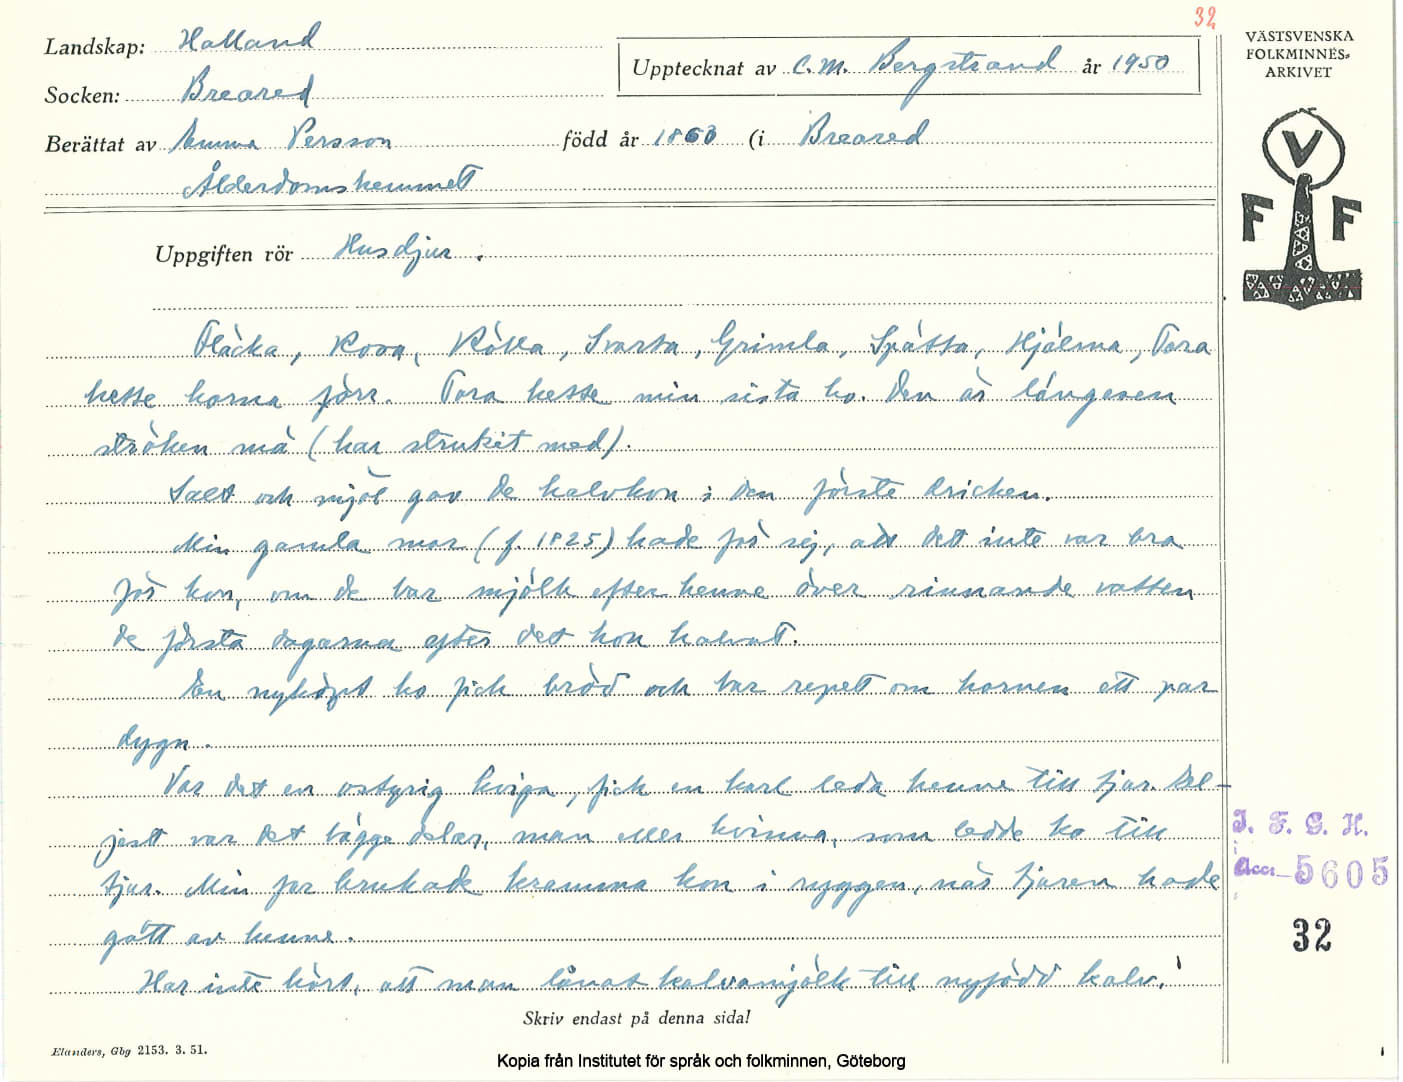 32
Landskap: Halland
Upptecknat av C. M. Bergstrand år 1950
Socken: Breared
Berättat av Emma Persson född år 1863 (i Breared
Ålderdomshemmet
Uppgiften rör Husdjur.
VÄSTSVENSKA
FOLKMINNES-
ARKIVET
V
F F
Fläcka, Rosa, Kölla, Svarta, Grimla, Spätta, Hjälma, Tora
hette korna förr. Tora hette min sista ko. Den är längesen
ströken mä (har strukit med).
Salt och mjöl gav de kalvkon i den förste dricken.
Min gamla mor (f. 1825) hade för sej, att det inte var bra
för kon, om de bar mjölk efter henne över rinnande vatten
de första dagarna efter det hon kalvat.
En nyköpt ko fick bröd och bar repet om hornen ett par
dygn.
Var det en ostyrig kviga, fick en karl leda henne till tjur. Del-
jest var det bägge delar, man eller kvinna, som ledde ko till
tjur. Min far brukade kramma kon i ryggen, när tjuren hade
gått av henne.
Har inte hört, att man lånat kalvamjölk till nyfödd kalv.
I. F. G. H.
Acc. 5605
32
Skriv endast på denna sida!
Elanders, Gbg 2153. 3. 51.
Kopia från Institutet för språk och folkminnen, Göteborg